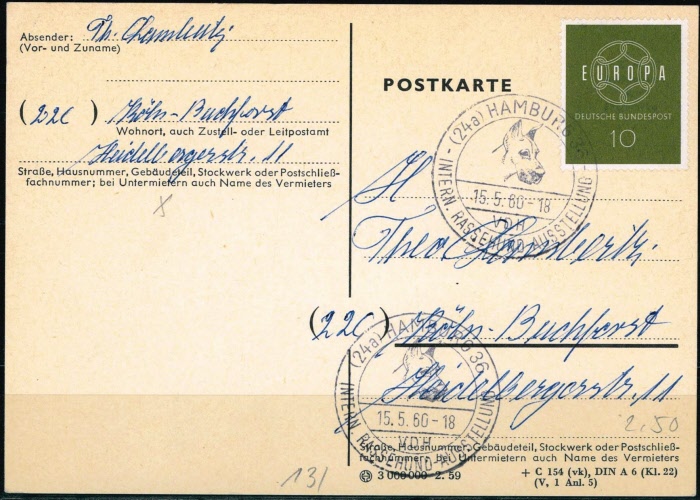 Absender: Th.
(Vor- und Zuname)
(22c) Köln-Buchforst
Wohnort, auch Zustell- oder Leitpostamt
Heidelbergerstr. 11
Straße, Hausnummer, Gebäudeteil, Stockwerk oder Postschließ-
fachnummer; bei Untermietern auch Name des Vermieters
POSTKARTE
EUROPA
DEUTSCHE BUNDESPOST
10
(24a) HAMBURG 36
15.5.60-18
VDH
INTERN. RASSEHUND-AUSSTELLUNG
Theo
(22c) Köln-Buchforst
Heidelbergerstr. 11
(24a) HAMBURG 36
15.5.60-18
VDH
INTERN. RASSEHUND-AUSSTELLUNG
2.50
Straße, Hausnummer, Gebäudeteil, Stockwerk oder Postschließ-
fachnummer; bei Untermietern auch Name des Vermieters
3 000 000 2. 59
+ C 154 (vk), DIN A 6 (Kl. 22)
(V, 1 Anl. 5)
131